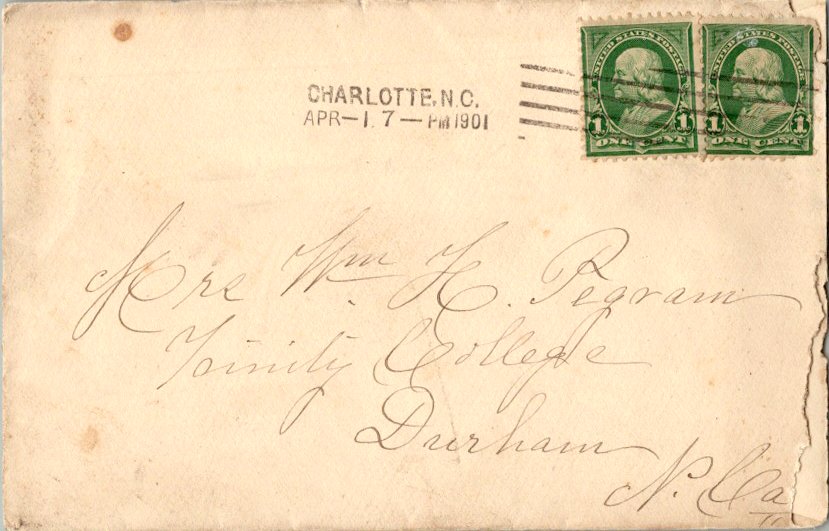 UNITED STATES POSTAGE UNITED STATES POSTAGE
1 1 1 1
ONE CENT ONE CENT
CHARLOTTE, N.C.
APR-1. 7-PM 1901
Mrs Wm H. Pegram
Trinity College
Durham
N. Ca